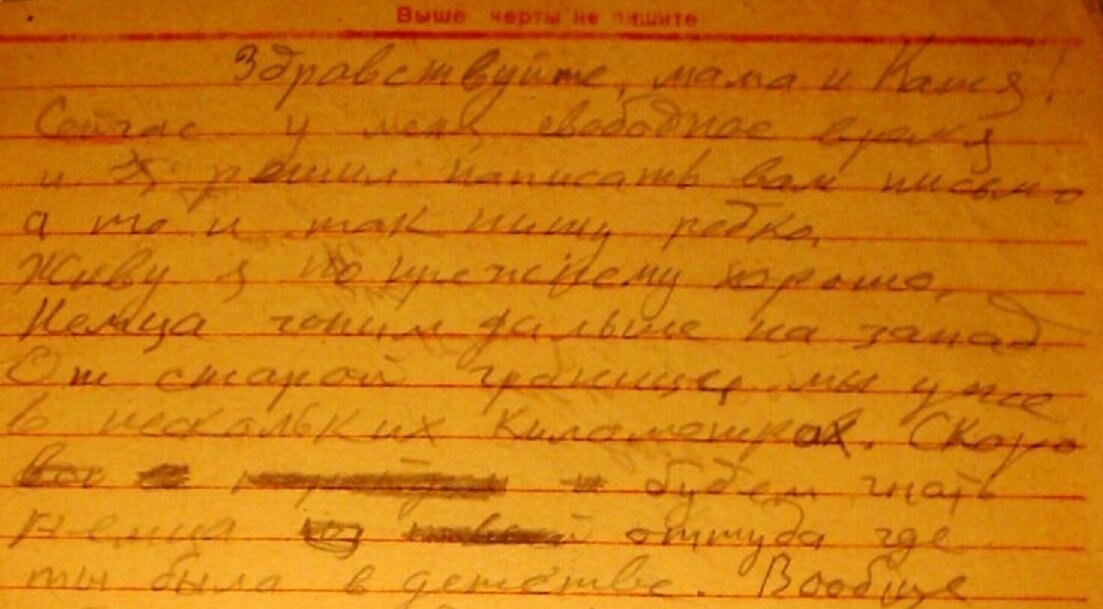 Выше черты не пишите
Здравствуйте, мама и Катя!
Сейчас у меня свободное время
и я решил написать вам письмо
а то и так пишу редко.
Живу я по прежнему хорошо.
Немца гоним дальше на запад
От старой границы мы уже
в нескольких километрах. Скоро
будем гнать
немца оттуда где
ты была в детстве. Вообще